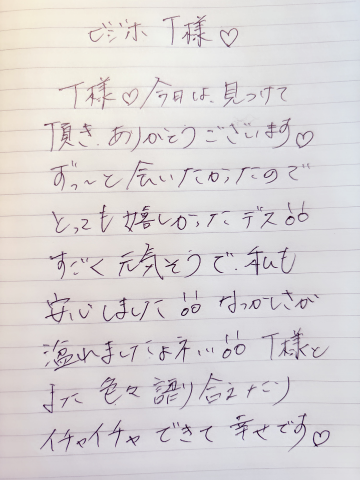 ビジホ T様♡
T様♡今日は、見つけて
頂き、ありがとうございます♡
ずっ〜と会いたかったので
とっても嬉しかったデス!!
すごく元気そうで、私も
安心しました!! なつかしさが
溢れましたょネ… !! T様と
また色々語り合えたり
イチャイチャできて幸せです♡